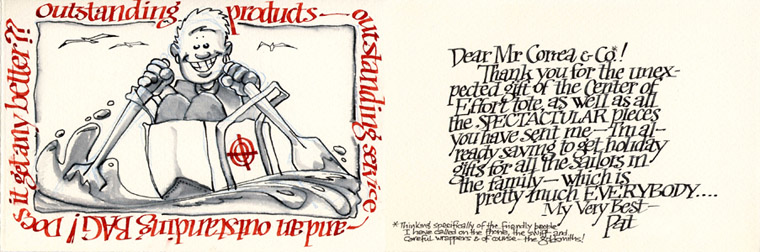 outstanding products —
outstanding service
— and an outstanding BAG! Does
it get any better??
Dear Mr Correa & Co*!
Thank you for the unex-
pected gift of the Center of
Effort tote, as well as all
the SPECTACTULAR pieces
you have sent me — I'm al-
ready saving to get holiday
gifts for all the sailors in
the family — which is
pretty much EVERYBODY....
My Very Best —
Pat
* Thinking specifically of the friendly people
I have called on the phone, the swift and
careful wrappers & of course — the goldsmiths!